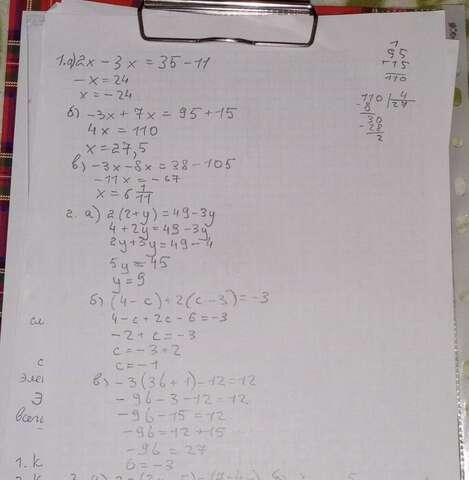 1.а) 2x - 3x = 35 - 11
- x = 24
x = - 24
б) -3x + 7x = 95 + 15
4x = 110
x = 27,5
в) -3x - 8x = 38 - 105
- 11x = - 67
x = 6 1/11
2. а) 2(2+y) = 49 - 3y
4 + 2y = 49 - 3y
2y + 3y = 49 - 4
5y = 45
y = 9
б) (4 - c) + 2(c - 3) = -3
4 - c + 2c - 6 = -3
-2 + c = -3
c = -3 + 2
c = -1
в) -3(3б + 1) - 12 = 12
- 9б - 3 - 12 = 12
- 9б - 15 = 12
- 9б = 12 + 15
- 9б = 27
б = -3
95
+15
110
110 | 4
- 8 27
30
- 28
2